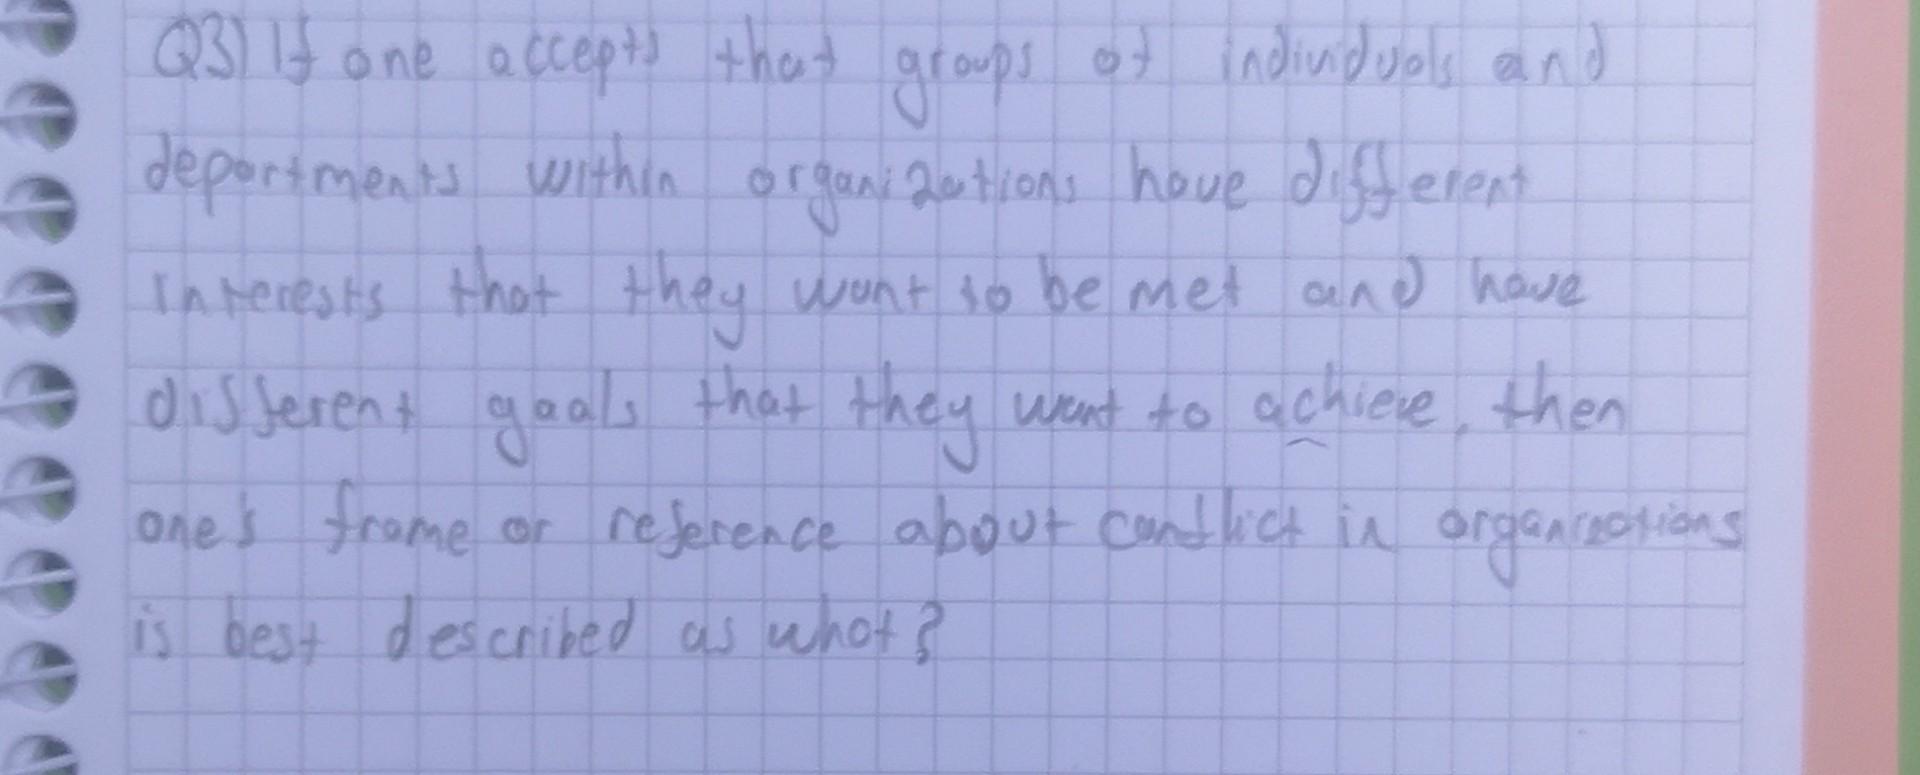 Q3) If one accepts that groups of individuals and
departments within organizations have different
interests that they want to be met and have
different goals that they want to achieve, then
one's frame or reference about conflict in organizations
is best described as what?